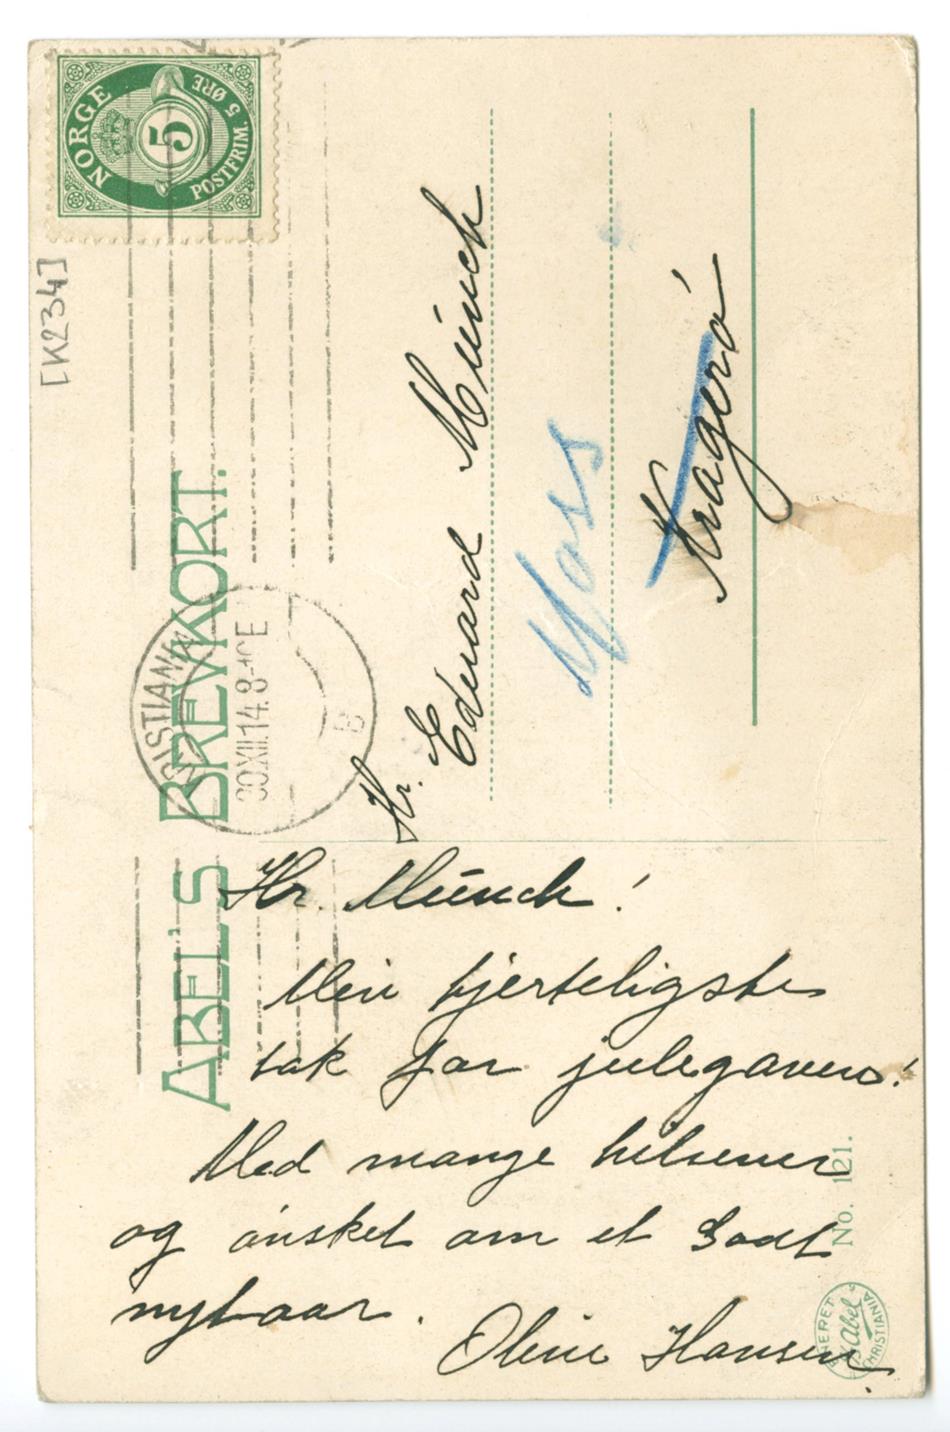 NORGE
5
POSTFRIM. 5 ØRE
[K234]
ABEL'S BREVKORT.
KRISTIANIA
30XII.14.8-10E
B
Hr. Edvard Münch
Moss
Kragerö
Hr. Münch!
Min hjerteligste
tak for julegaven!
Med mange hilsener
og önsket om et Godt
nytaar.
Oline Hansen.
No. 121.
ENERET
Abel's
CHRISTIANIA